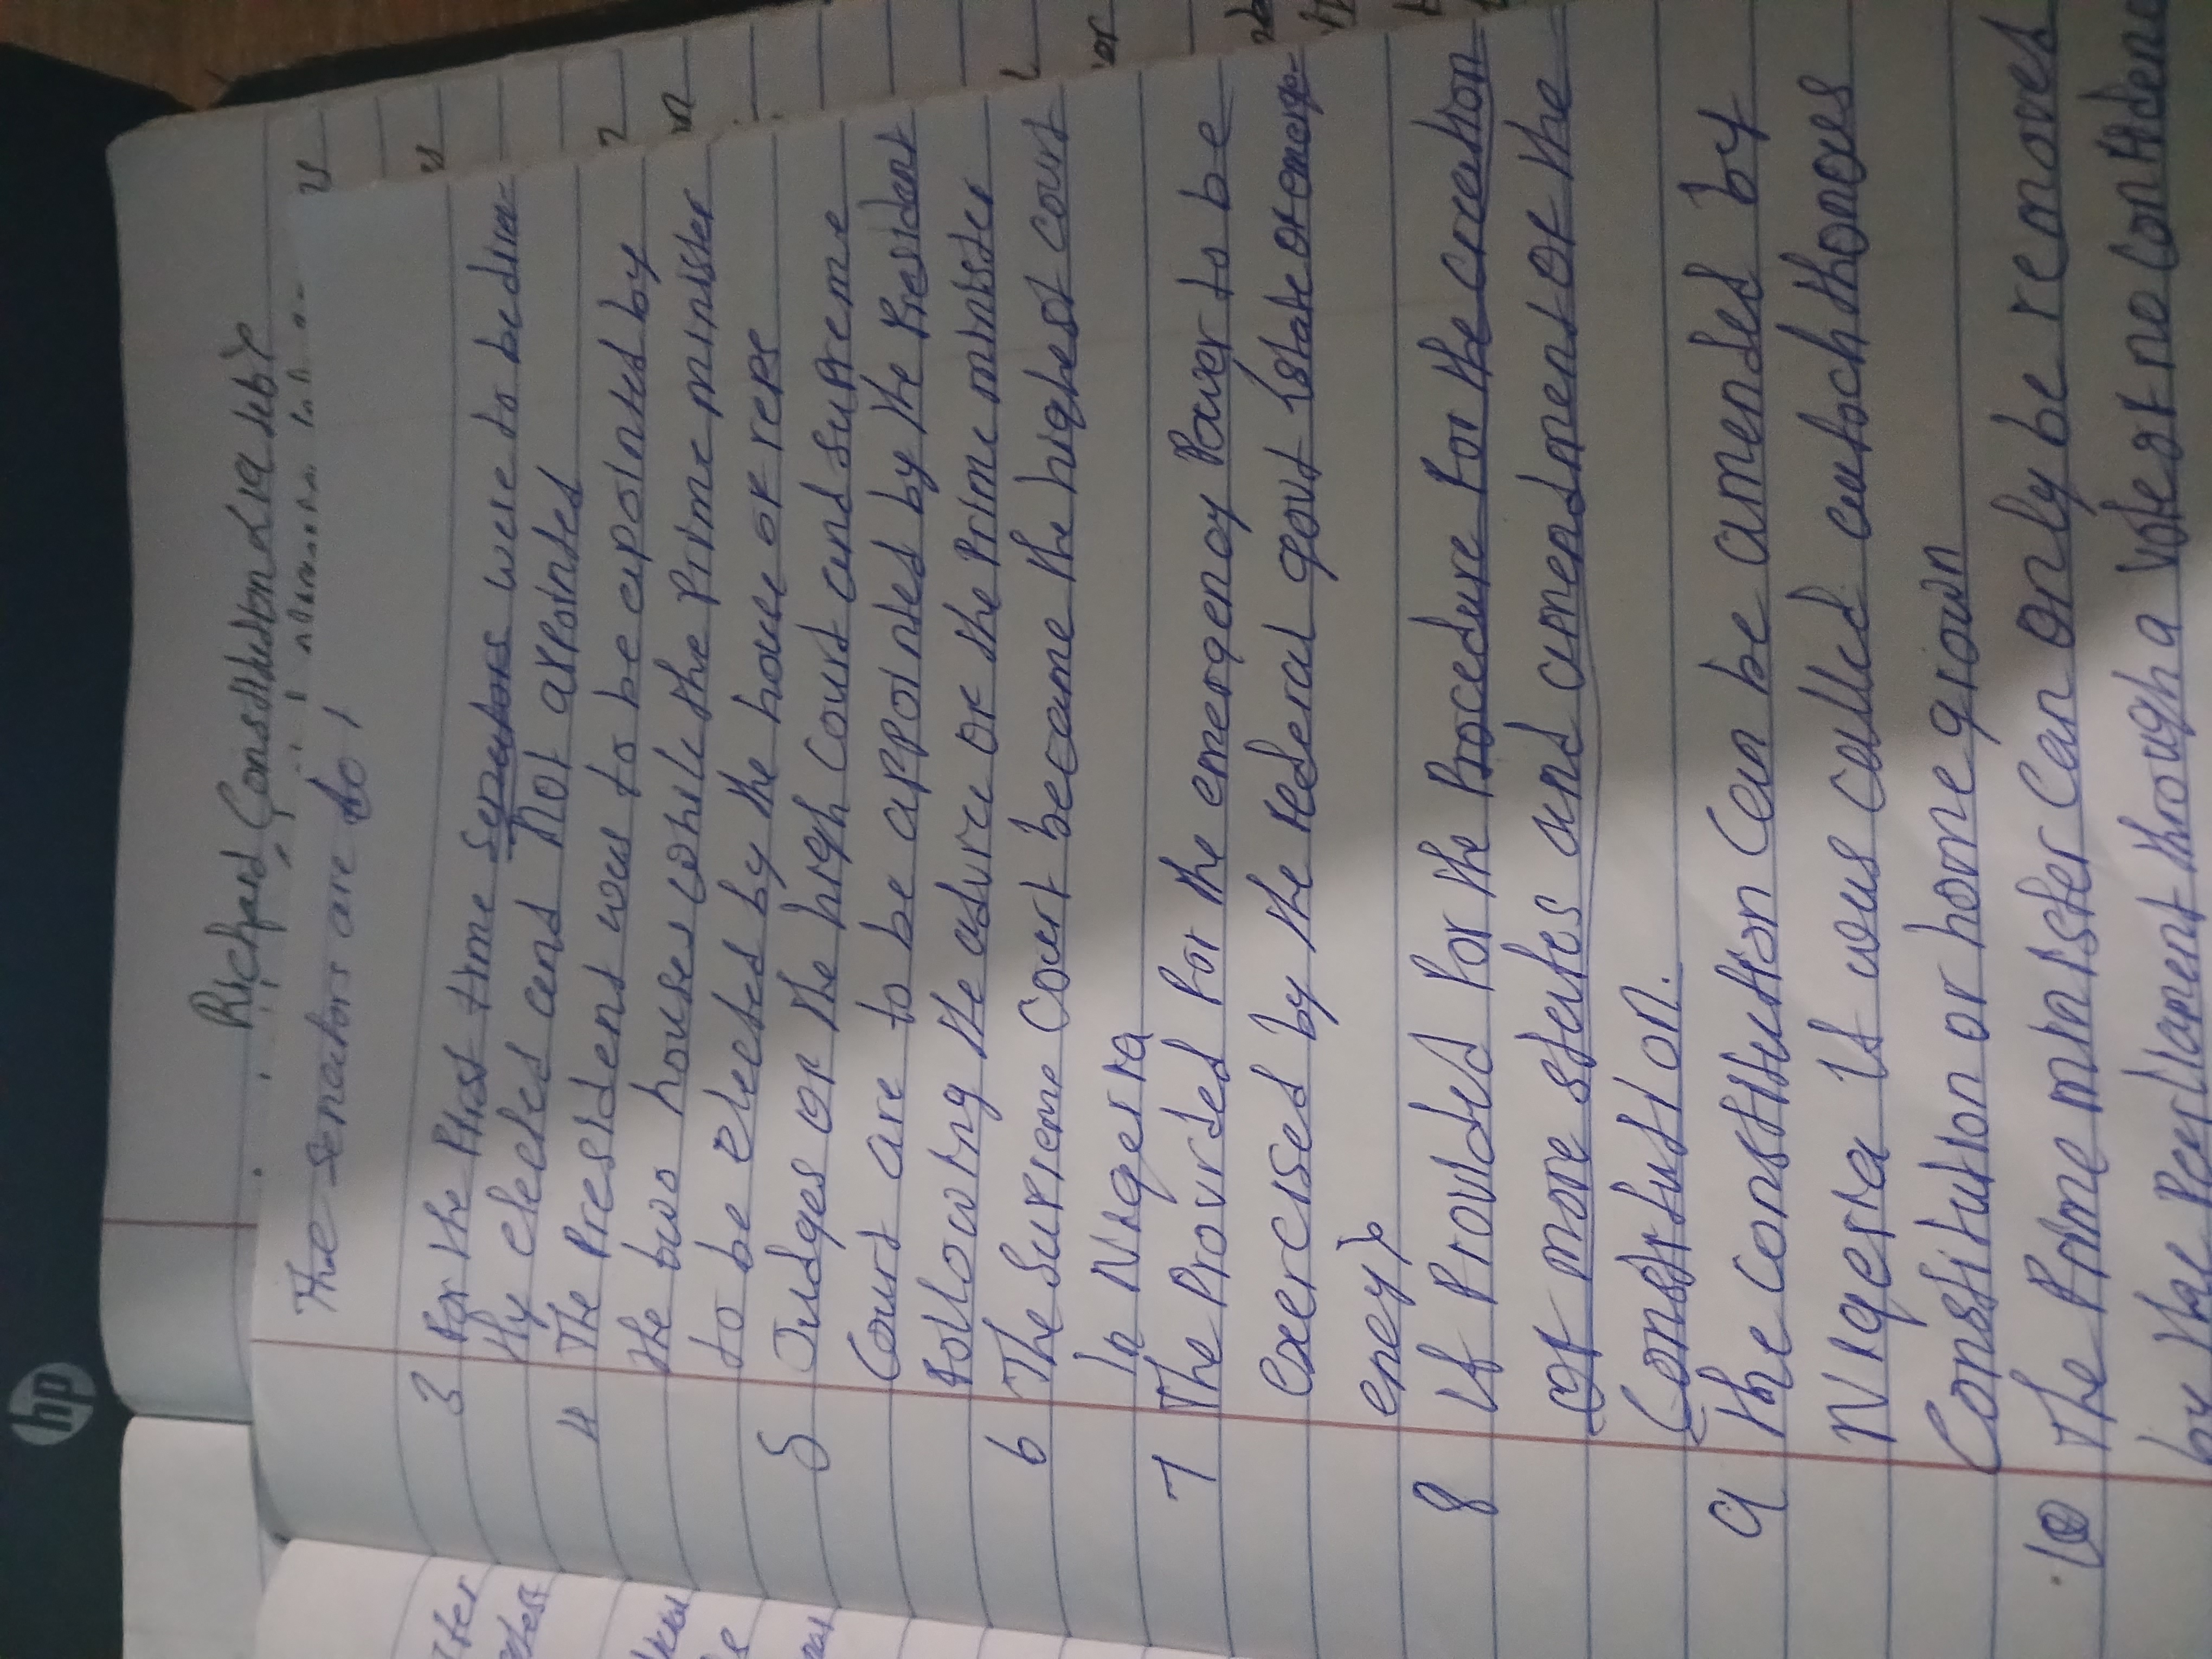 hp
Richard Constitution
The senators are to
3 For the First time Senators were to be direc-
tly elected and not appointed
4 The President was to be apointed by
the two houses while the Prime minister
to be elected by the house of reps
5 Judges of the high Court and Supreme
Court are to be appointed by the President
following the advice of the Prime minister
6 The Supreme Court became the highest court
In Nigeria
7 The Provided for the emergency Power to be
exercised by the federal govt (state of emerge-
ency)
8 It Provided for the Procedure for the creation
of more states and amendment of the
Constitution.
9 The constitution Can be amended by
Nigeria It was called autochthonous
Constitution or home grown
10 The Prime minister Can only be removed
by the Parliament through a vote of no Confidenc